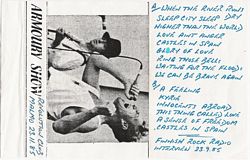 ARMOURY SHOW
MALMO 23.11.85
A/ WHEN THE RIVER RUNS
SLEEP CITY SLEEP DAY
HIGHER THAN THE WORLD
LOVE AINT AWARE
CASTLES IN SPAIN
GLORY OF LOVE
RING THOSE BELLS
WAITING FOR THE FLOODS
WE CAN BE BRAVE AGAIN
B/ A FEELING
KYRIE
INNOCENTS ABROAD
THIS THING CALLED LOVE
A SENSE OF FREEDOM
CASTLES IN SPAIN
FINNISH ROCK RADIO
INTERVIEW 23.9.85